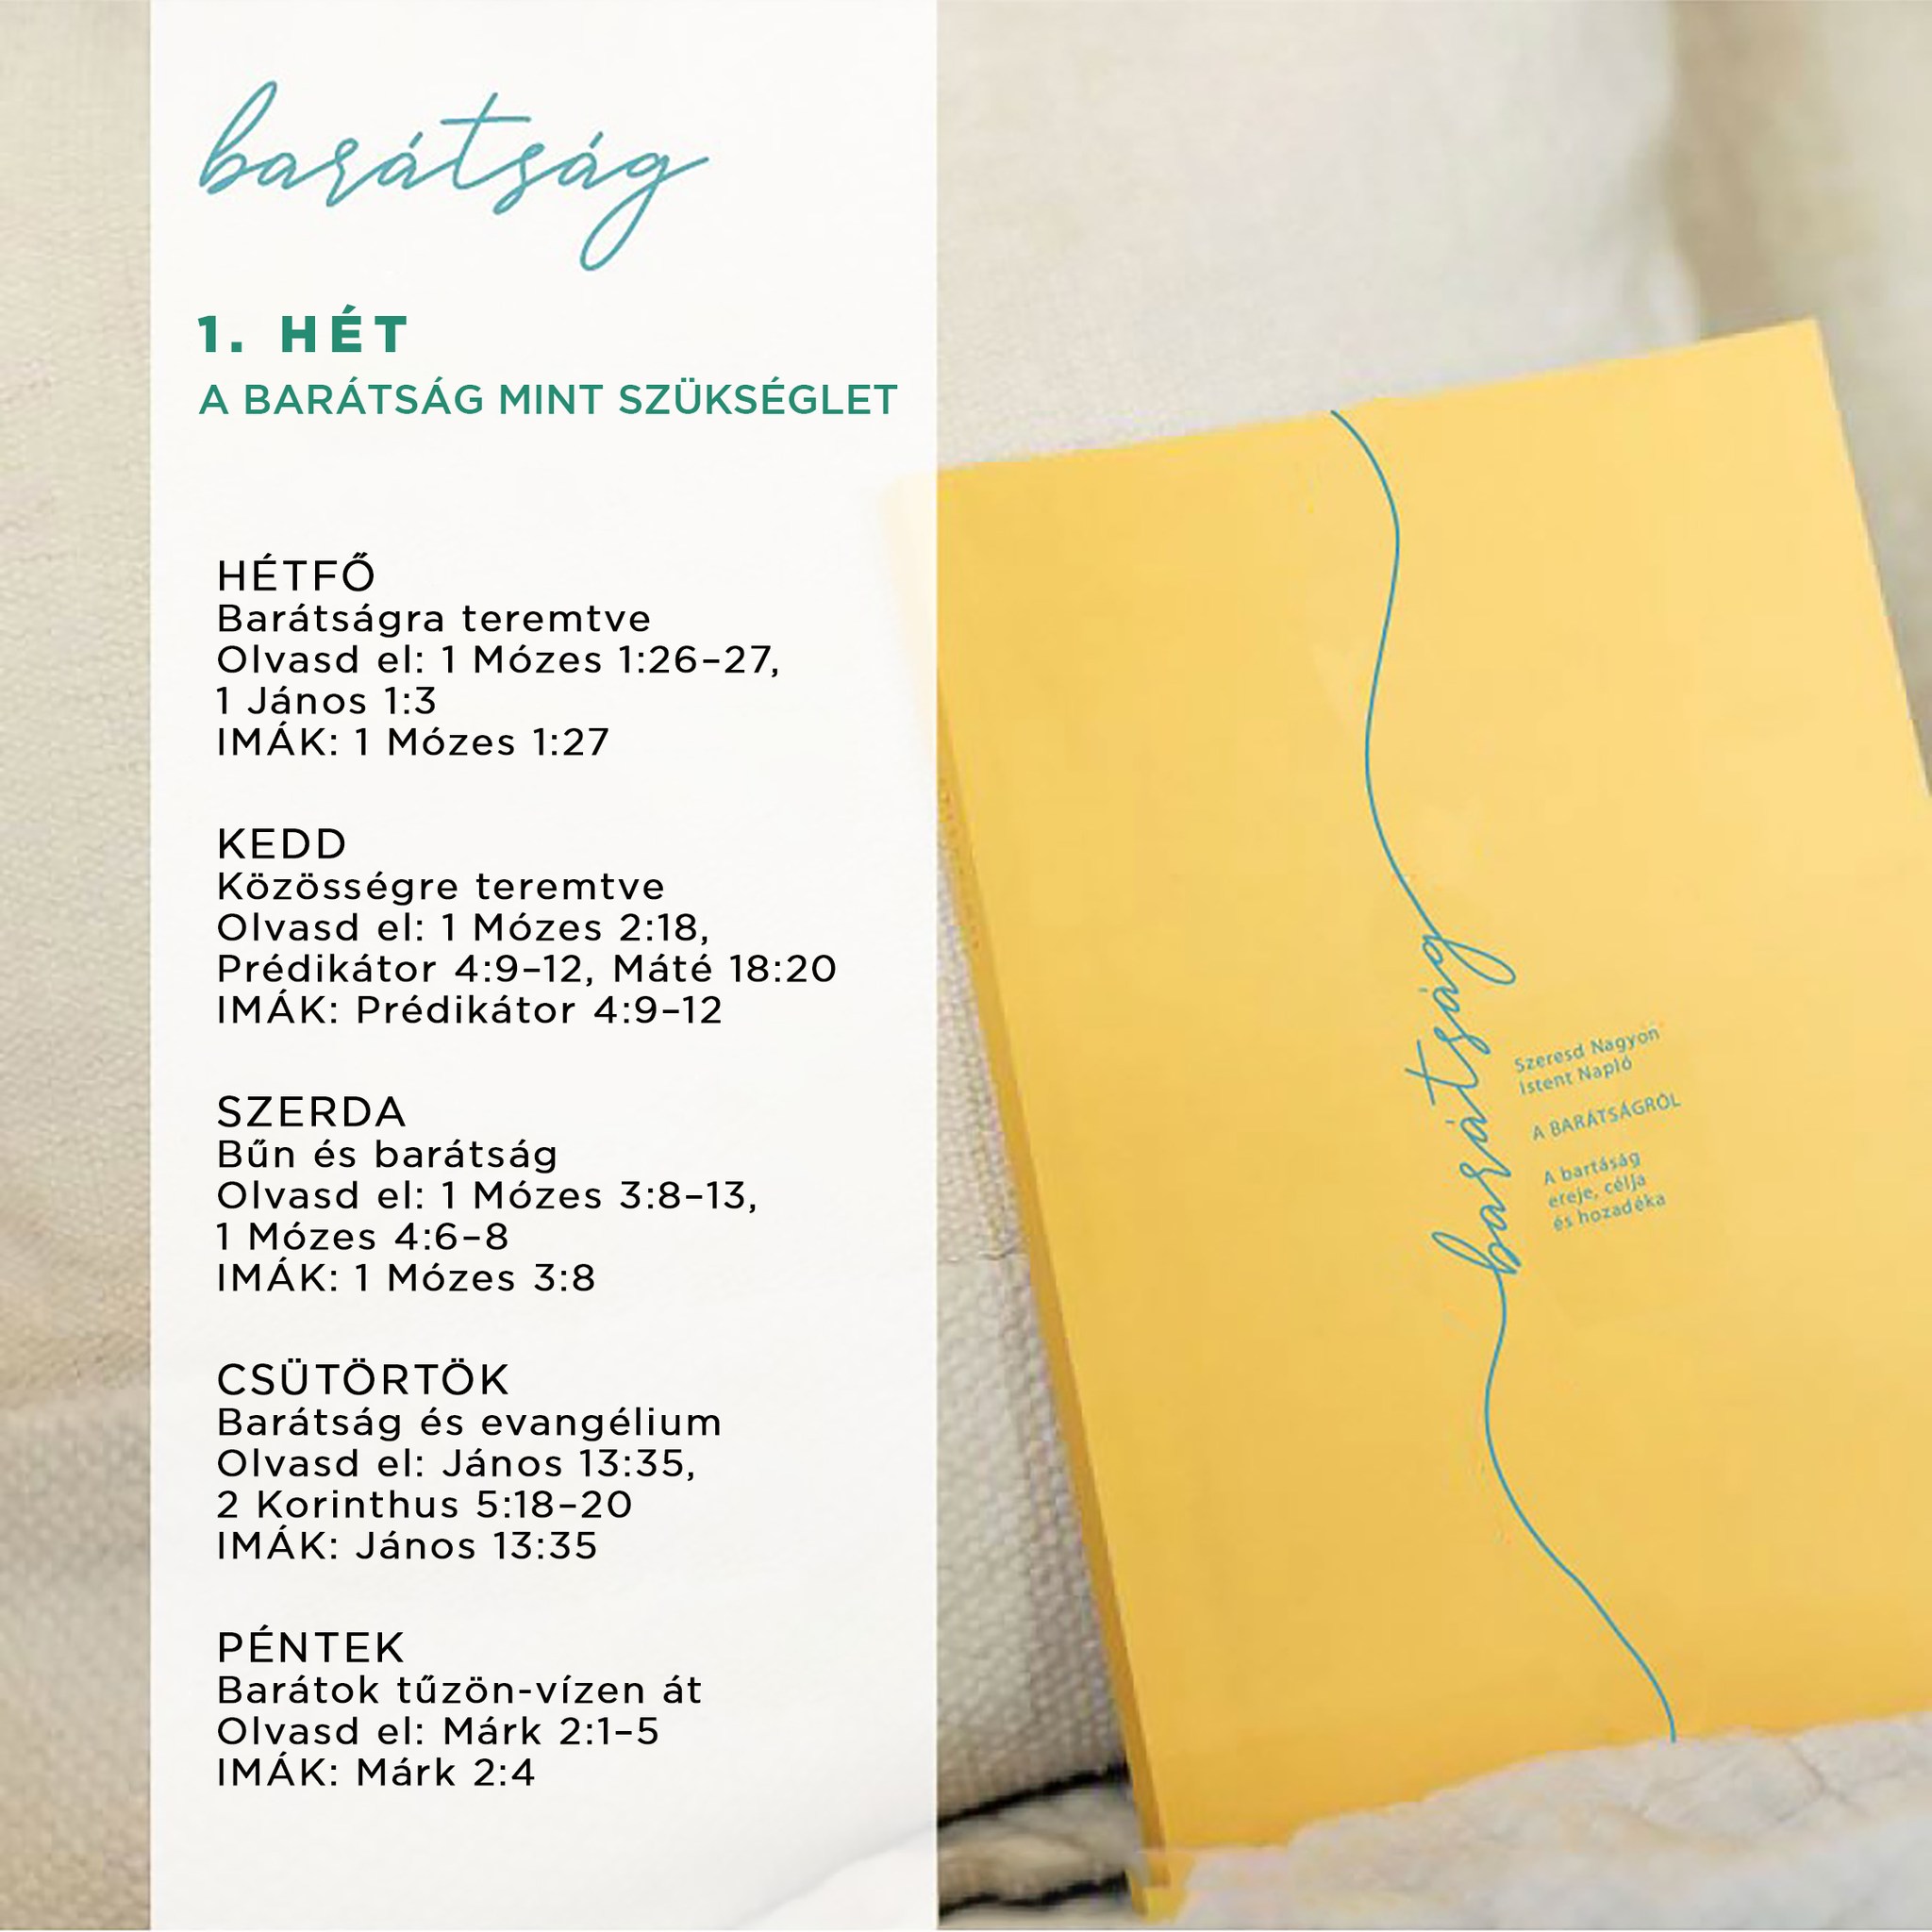 barátság
1. HÉT
A BARÁTSÁG MINT SZÜKSÉGLET
HÉTFŐ
Barátságra teremtve
Olvasd el: 1 Mózes 1:26–27,
1 János 1:3
IMÁK: 1 Mózes 1:27
KEDD
Közösségre teremtve
Olvasd el: 1 Mózes 2:18,
Prédikátor 4:9–12, Máté 18:20
IMÁK: Prédikátor 4:9–12
SZERDA
Bűn és barátság
Olvasd el: 1 Mózes 3:8–13,
1 Mózes 4:6–8
IMÁK: 1 Mózes 3:8
CSÜTÖRTÖK
Barátság és evangélium
Olvasd el: János 13:35,
2 Korinthus 5:18–20
IMÁK: János 13:35
PÉNTEK
Barátok tűzön-vízen át
Olvasd el: Márk 2:1–5
IMÁK: Márk 2:4
barátság
Szeresd Nagyon
Istent Napló
A BARÁTSÁGRÓL
A bartáság
ereje, célja
és hozadéka